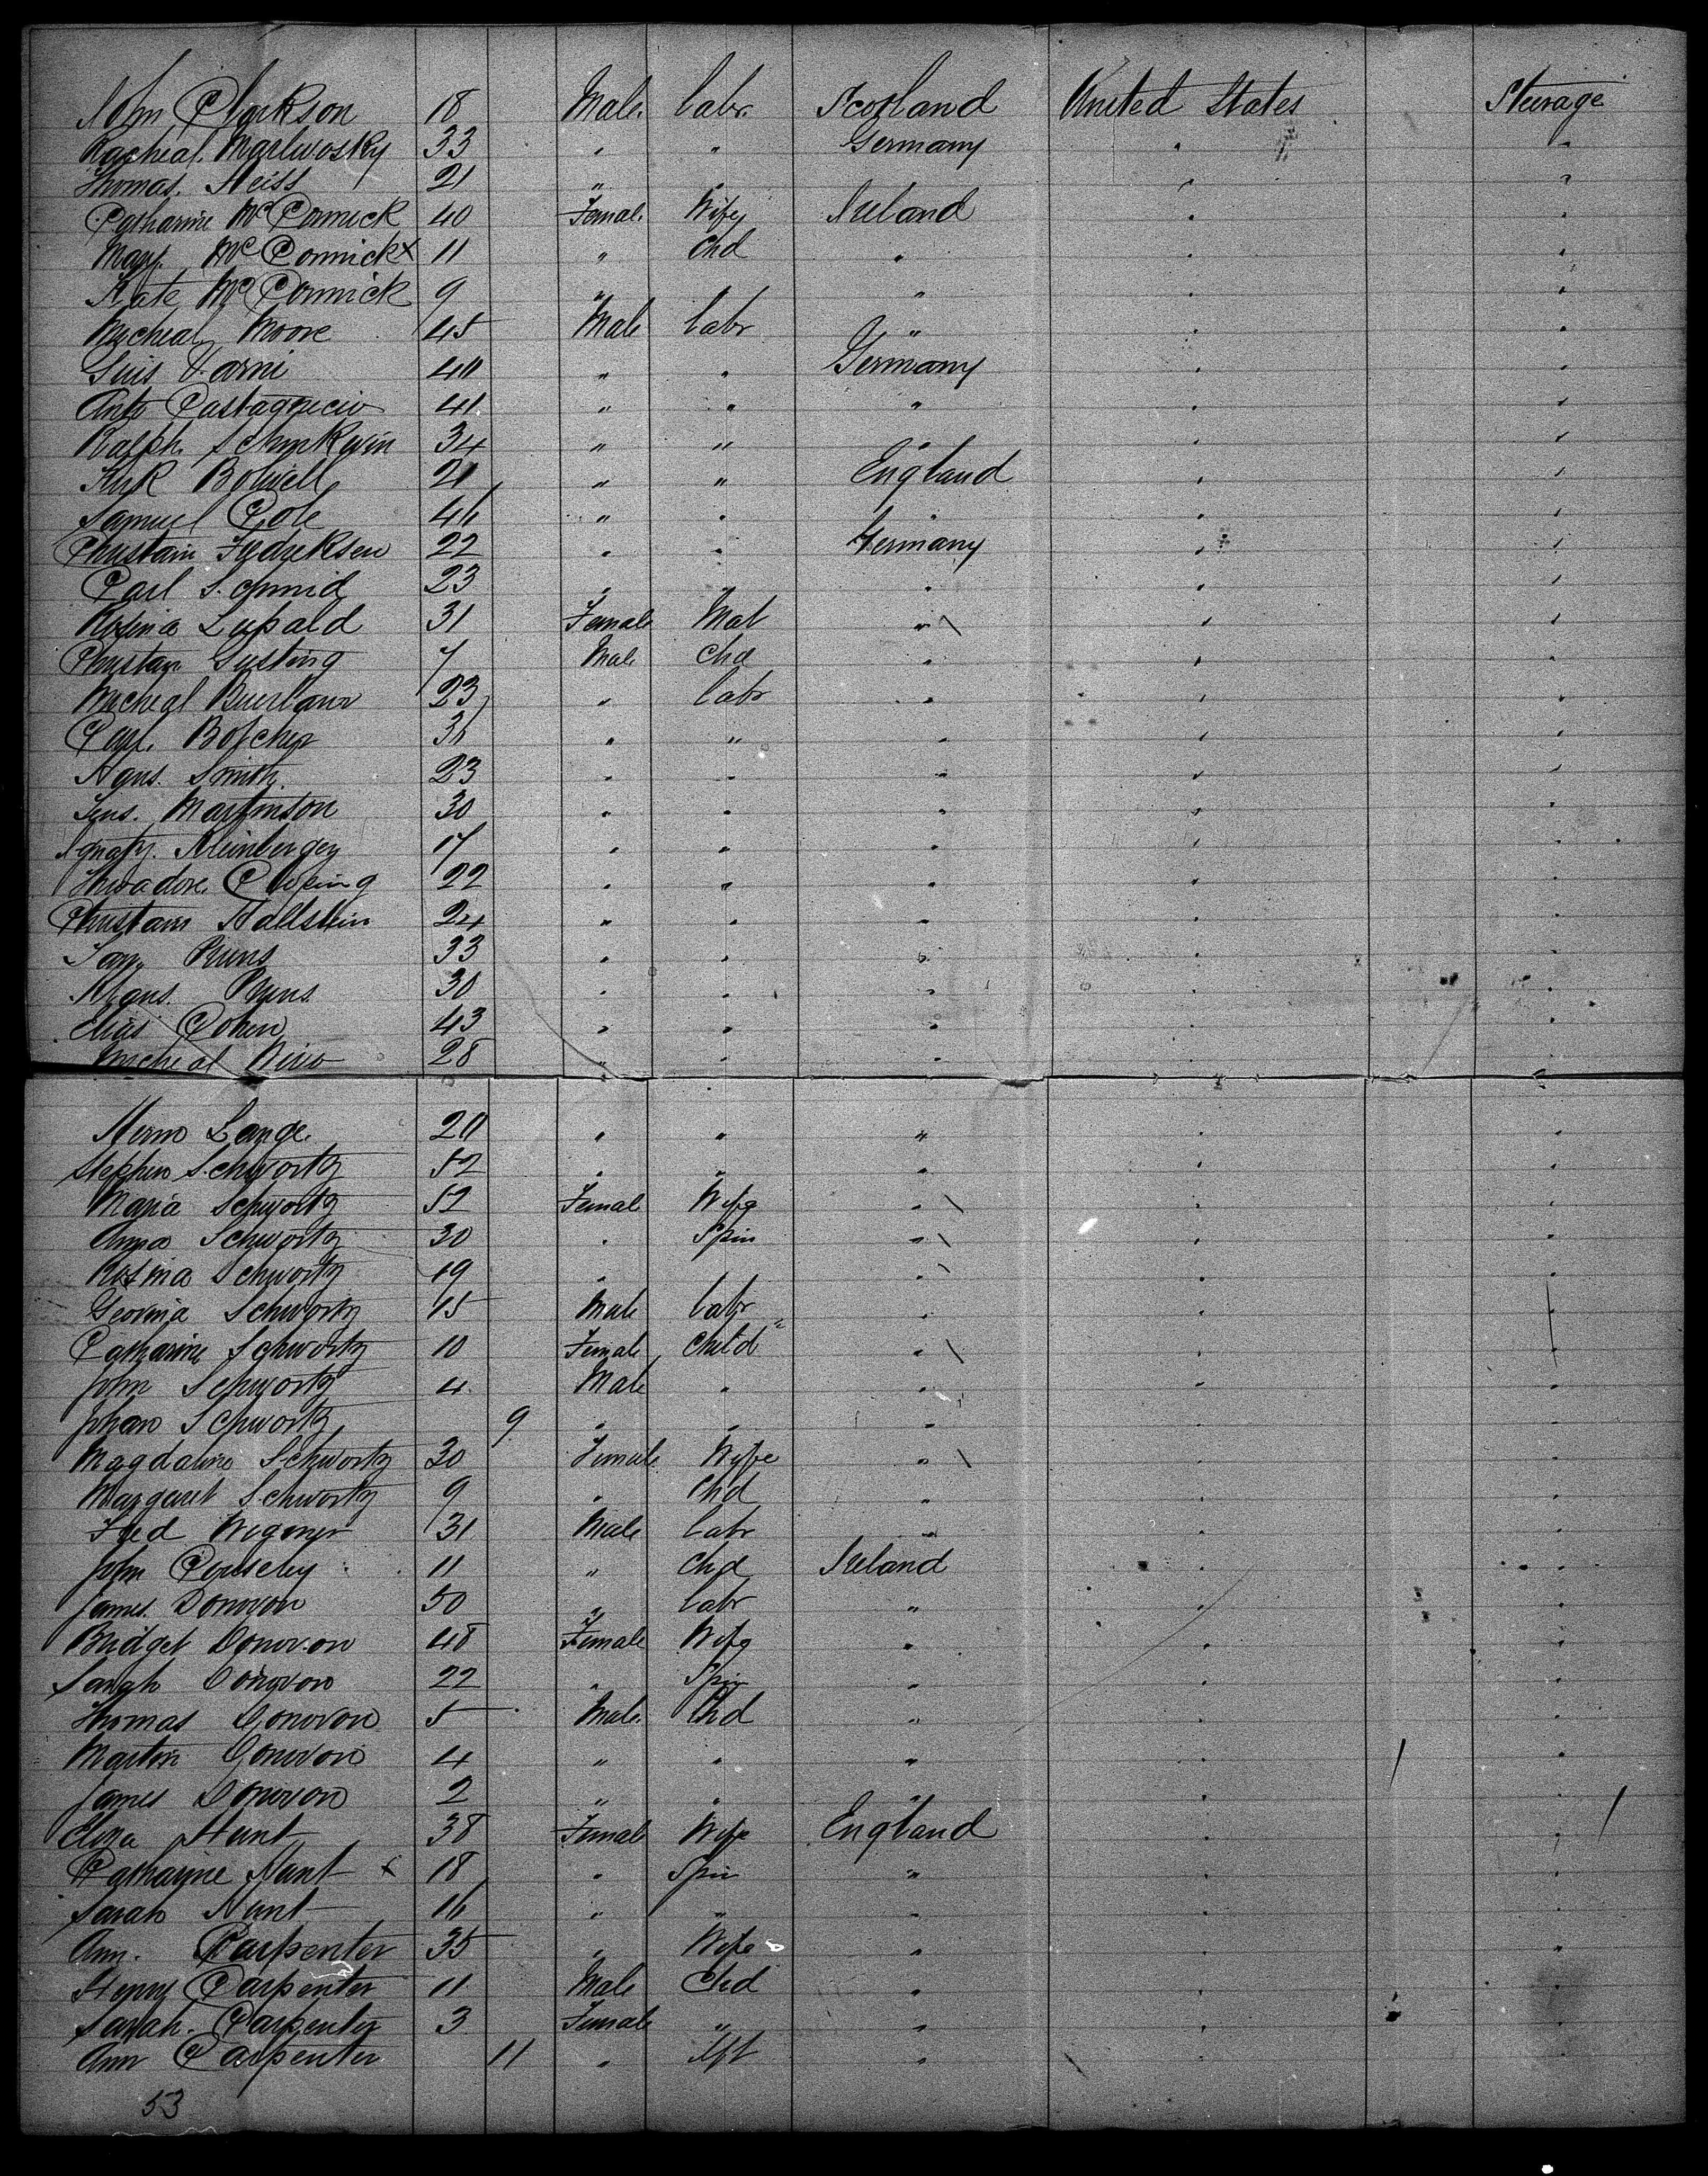 John Clarkson 18 Male. Labr. Scotland United States Steerage
Racheal. Marlwosky 33 " " Germany " "
Thomas. Neiss 21 " " " "
Catharine McCormick 40 Female Wife Ireland " "
Mary. McCormick x 11 " Chd " " "
Kate McCormick 9 " " " " "
Micheal Moore 45 Male Labr " " "
Varni " " Germany " "
Anto 41 " " " " "
Ralph. 34 " " " " "
Kirk Bolwell " " England " "
Samuel Cole 46 " " " " "
Christain Fredreksen 22 " " Germany " "
Carl Schmid 23 " " " " "
Rosina Lupald 31 Female Mat " \ " "
Gusting 7 Male Chd " " "
Micheal 23 " Labr " " "
Carl. 36 " " " " "
Hans. Smith. 23 " " " " "
Jens. Martinson 30 " " " " "
Ignatz. Kleinberger 17 " " " " "
Theadore. 22 " " " " "
Christain Hallstein 24 " " " " "
33 " " " " "
30 " " " " "
Elias Cohen 43 " " " " "
Micheal 28 " " " " "
Lange. 20 " " " " "
Stephen Schwortz 52 " " " " "
Maria Schwortz 52 Female Wife " \ " "
Anna Schwortz 30 " Spin " \ " "
Rosina Schwortz 19 " " " \ " "
Schwortz 15 Male Labr " " "
Catharine Schwortz 10 Female Child " \ " "
John Schwortz 4 Male " " " "
Johan Schwortz 9 " " " " "
Magdaline Schwortz 30 Female Wife " \ " "
Margaret Schwortz 9 " Chd " " "
Fred Wegener 31 Male Labr " " "
John 11 " Chd Ireland " "
James. Donovon 50 " Labr " " "
Bridget Donovon 48 Female Wife " " "
Sarah Donovon 22 " Spin " " "
Thomas Donovon 5 Male. Chd " " "
Martin Donovon 4 " " " " "
James Donovon 2 " " " " "
Eliza Hunt 38 Female Wife England " "
Catharine Hunt x 18 " Spin " " "
Sarah Hunt 16 " " " " "
Ann. Carpenter 35 " Wife " " "
Henry Carpenter 11 Male Chd " " "
Sarah. Carpenter 3 Female " " " "
Ann Carpenter 11 " Ift " " "
53